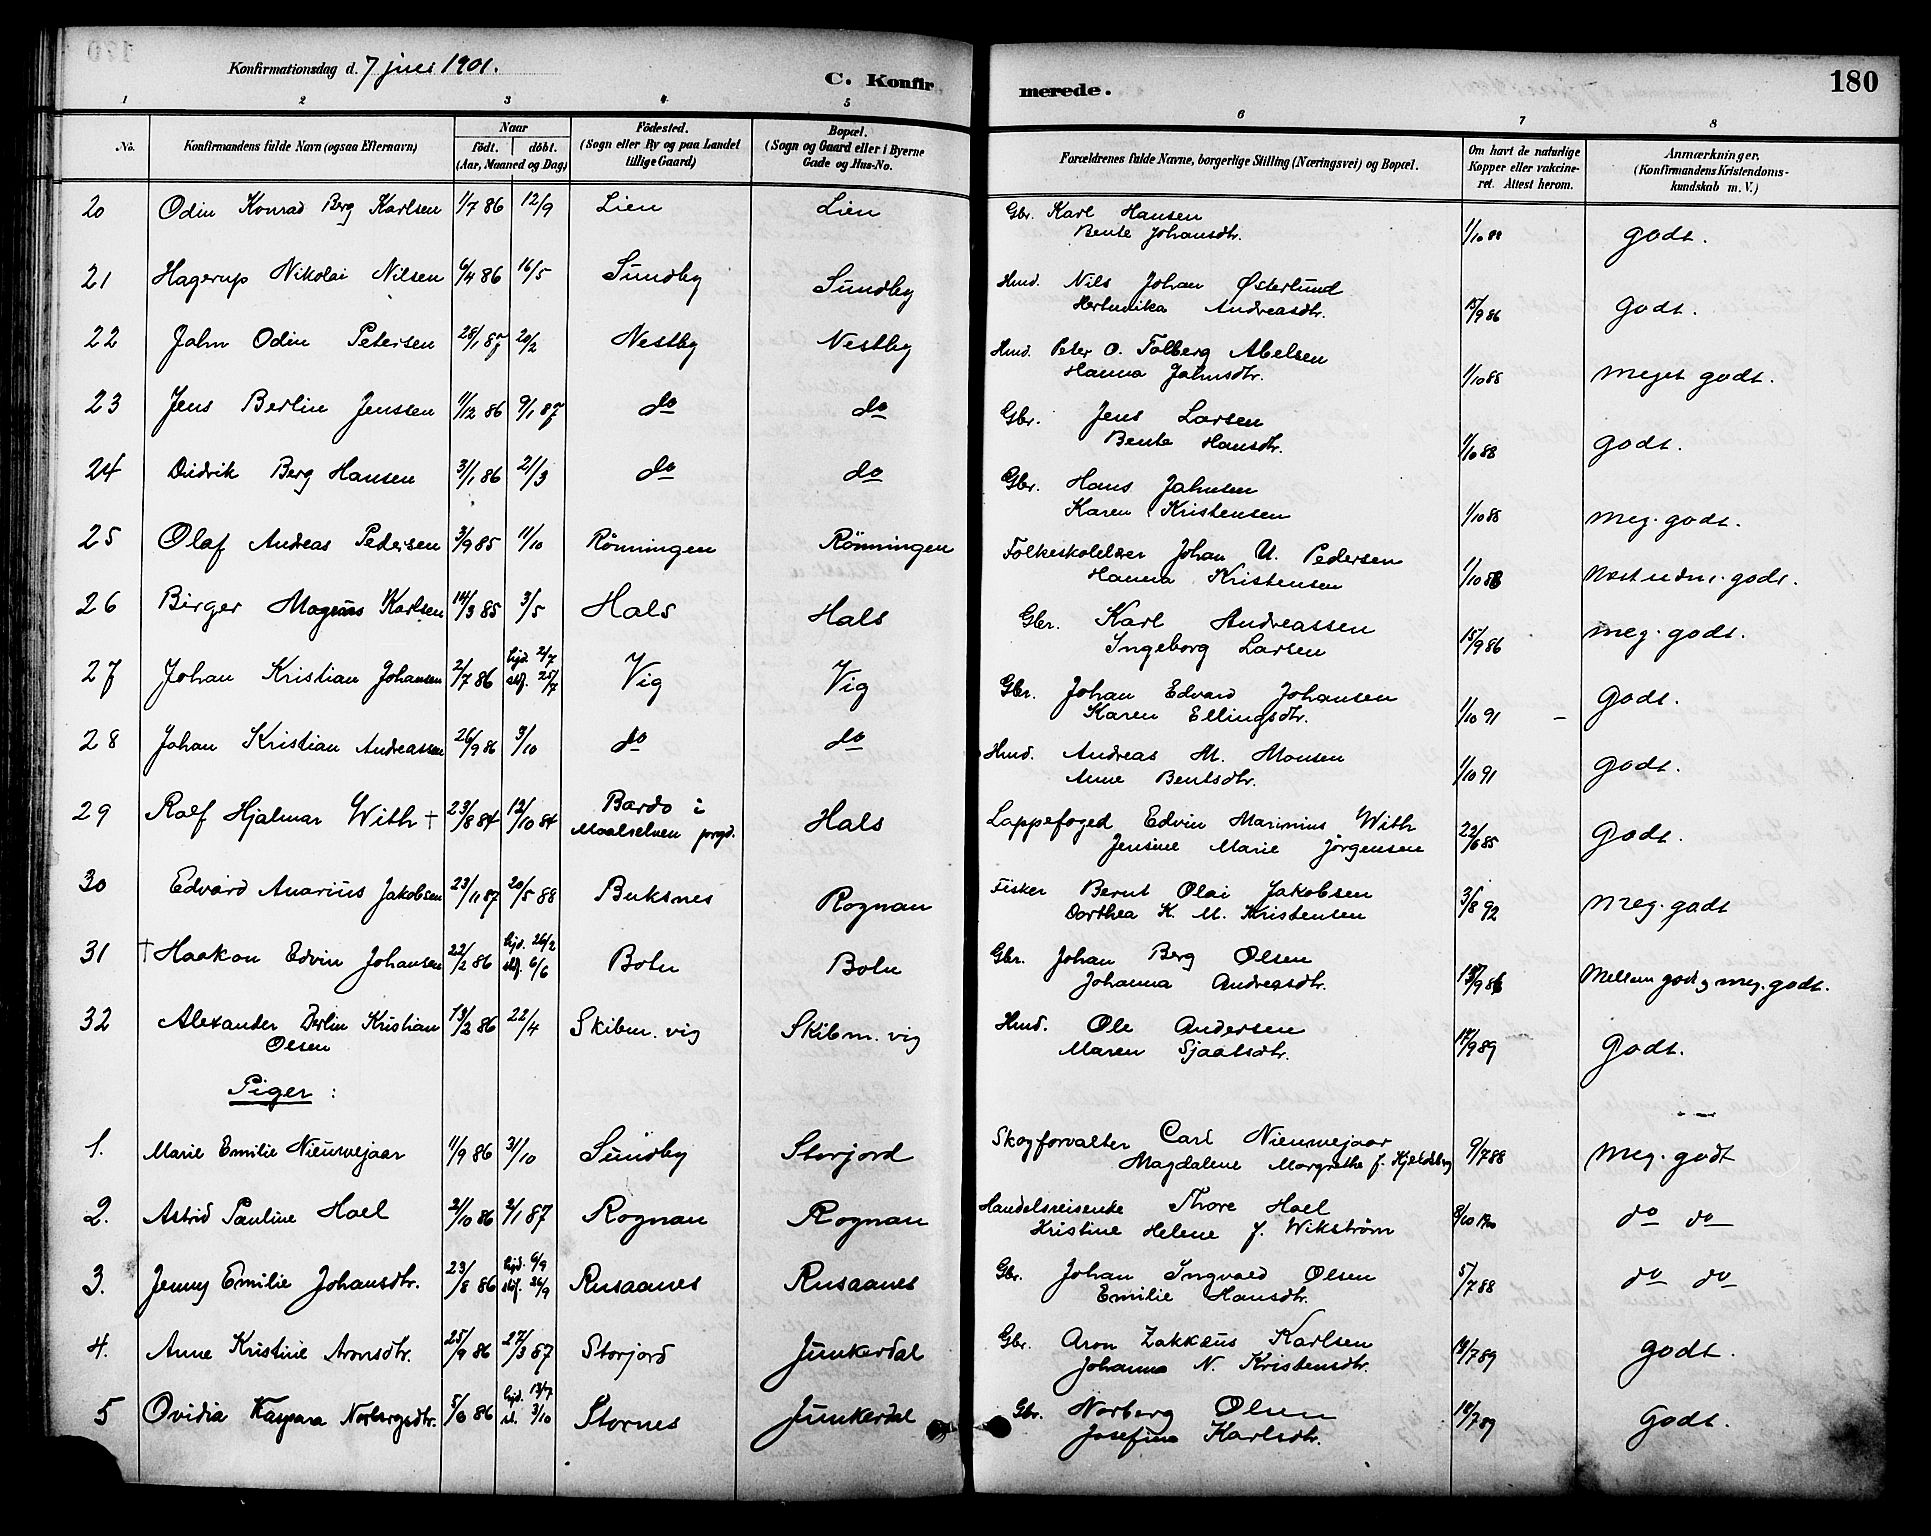 Konfirmationsdag d. 7 juli 1901.
C. Konfirmerede.
180
1 2 3 4 5 6 7 8
No. Konfirmandens fulde Navn (ogsaa Efternavn) Naar födt. döbt. (Aar, Maaned og Dag) Födested. (Sogn eller By og paa Landet tillige Gaard) Bopæl. (Sogn og Gaard eller i Byerne Gade og Hus-No. Forældrenes fulde Navne, borgerlige Stilling (Næringsvei) og Bopæl. Om havt de naturlige Kopper eller vakcineret. Attest herom. Anmærkninger. (Konfirmandens Kristendomskundskab m. V.)
20 Odin Konrad Berg Karlsen 1/7 86 12/9 Lien Lien Gbr. Karl Hansen
Bente Johansdtr. 1/10 88 godt.
21 Hagerup Nikolai Nilsen 6/4 86 16/5 Sundby Sundby Hmd. Nils Johan Østerlund
Andreasdtr. 15/9 86 godt.
22 Jahn Odin Petersen 28/1 87 20/2 Nestby Nestby Hmd. Peter O. Tolberg Abelsen
Hanna Jahnsdtr. 1/10 88 meget godt.
23 Jens Berlin Jenssen 11/12 86 9/1 87 do do Gbr. Jens Larsen
Bente Hansdtr. 1/10 88 godt.
24 Didrik Berg Hansen 3/1 86 21/3 do do Gbr. Hans Jahnsen
Karen Kristensen 1/10 88 meg. godt.
25 Olaf Andreas Pedersen 3/9 85 11/10 Rönningen Rönningen Folkeskolelær Johan U. Pedersen
Hanna Kristensen 1/10 88 godt.
26 Birger Magnus Karlsen 14/3 85 3/5 Hals Hals Gbr. Karl Andreassen
Ingeborg Larsen 15/9 86 meg. godt.
27 Johan Kristian Johansen 2/7 86 hjd. 2/7 stf. 25/7 Vig Vig Gbr. Johan Edvard Johansen
Karen Ellingsdtr. 1/10 91 – godt.
28 Johan Kristian Andreassen 26/9 86 3/10 do do Hmd. Andreas M. Monsen
Anne Bentsdtr. 1/10 91 godt.
29 Ralf Hjalmar With † 23/8 84 12/10 84 Bardo i
Maalselven prgd. Hals Lappefoged Edvin Marinius With
Jensine Marie Jørgensen 22/6 85 godt.
30 Edvard Anarius Jakobsen 23/11 87 20/5 88 Buksnes Rognan Fisker Bernt Olai Jakobsen
Dorthea K. M. Kristensen 3/8 92 meg. godt
31 † Haakon Edvin Johansen 22/2 86 hjd. 26/2 stf. 6/6 Botn Botn Gbr. Johan Berg Olsen
Johanna Andreasdtr. 15/9 86 Mellem godt og meg. godt.
32 Alexander Berlin Kristian
Olsen 13/2 86 22/4 Skibm. vig Skibm. vig Hmd. Ole Andersen
Maren Sjaalsdtr. 17/9 89 Godt.
Piger :
1. Marie Emilie Nieuwejaar 11/9 86 31/10 Sundby Storjord Skogforvalter Carl Nieuwejaar
Magdalene Margrethe f. Kjeldsberg 9/7 88 meg. godt
2. Astrid Pauline Hoel 21/10 86 2/1 87 Rognan Rognan Handelsreisende Thore Hoel
Kristine Helene f. Wikstrøm do do
3. Jenny Emilie Johansdtr. 23/8 86 hjd. 6/9 stf. 26/9 Rusaanes Rusaanes Gbr. Johan Ingvald Olsen
Emilie Hansdtr. 5/7 88 do do
4. Anne Kristine Aronsdtr. 25/9 86 27/3 87 Storjord Junkerdal Gbr. Aron Zakkæus Karlsen
Johanna N. Kristensdtr. 18/7 89 godt.
5 Ovidia Kaspara Norbergsdtr. 5/6 86 hjd. 13/7 st. 3/10 Stornes Junkerdal Gbr. Norberg Olsen
Josefine Karlsdtr. 18/7 89 Godt.